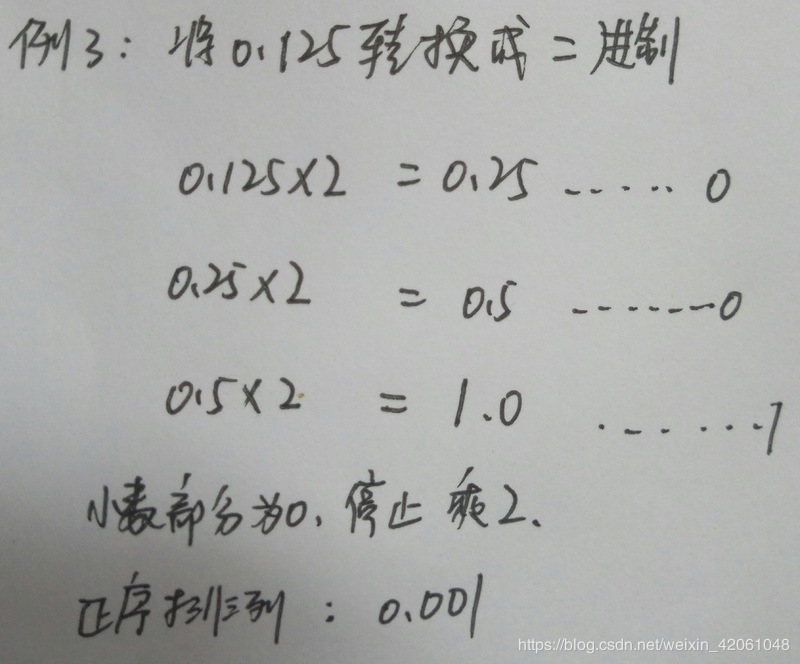 例3: 将0.125转换成二进制
0.125×2 = 0.25 ...... 0
0.25×2 = 0.5 ....... 0
0.5×2 = 1.0 ....... 1
小数部分为0, 停止乘2.
正序排列: 0.001
https://blog.csdn.net/weixin_42061048